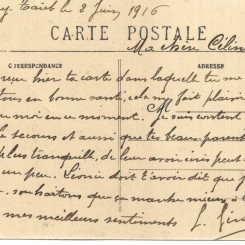 Taich le 3 Juin, 1916
CARTE POSTALE
Ma chère Céline
CORRESPONDANCE
ADRESSE
reçu hier ta carte dans laquelle tu me
en bonne santé, cela me fait plaisir
moi en ce moment. Je suis content
secours et aussi que tes beaux-parents
plus tranquille, de leur avoir
peu. Léonie doit t'avoir dit que
souhaitons que ça marche mieux
mes meilleurs sentiments